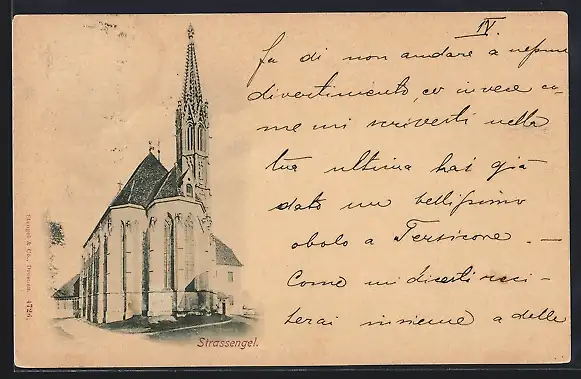 IV.
fa di non andare a nessun
divertimento, ed invece co-
me mi scrivesti nella
tua ultima hai già
dato un bellissimo
obolo a Tersicore. —
Come mi
insieme a delle
Strassengel.
Stengel & Co., Dresden. 4726.